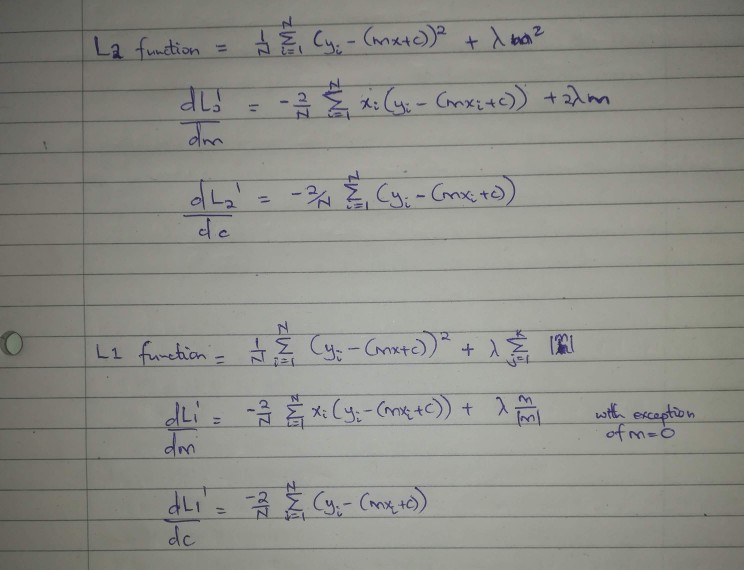 L2 function = 1/N Σ_{i=1}^{N} (y_i - (mx+c))² + λ m²
dL₂'/dm = -2/N Σ_{i=1}^{N} x_i (y_i - (mx_i+c)) + 2λm
dL₂'/dc = -2/N Σ_{i=1}^{N} (y_i - (mx_i+c))
L1 function = 1/N Σ_{i=1}^{N} (y_i - (mx+c))² + λ Σ_{j=1}^{k} |m|
dL₁'/dm = -2/N Σ_{i=1}^{N} x_i (y_i - (mx_i+c)) + λ m/|m| with exception
of m=0
dL₁'/dc = -2/N Σ_{i=1}^{N} (y_i - (mx_i+c))